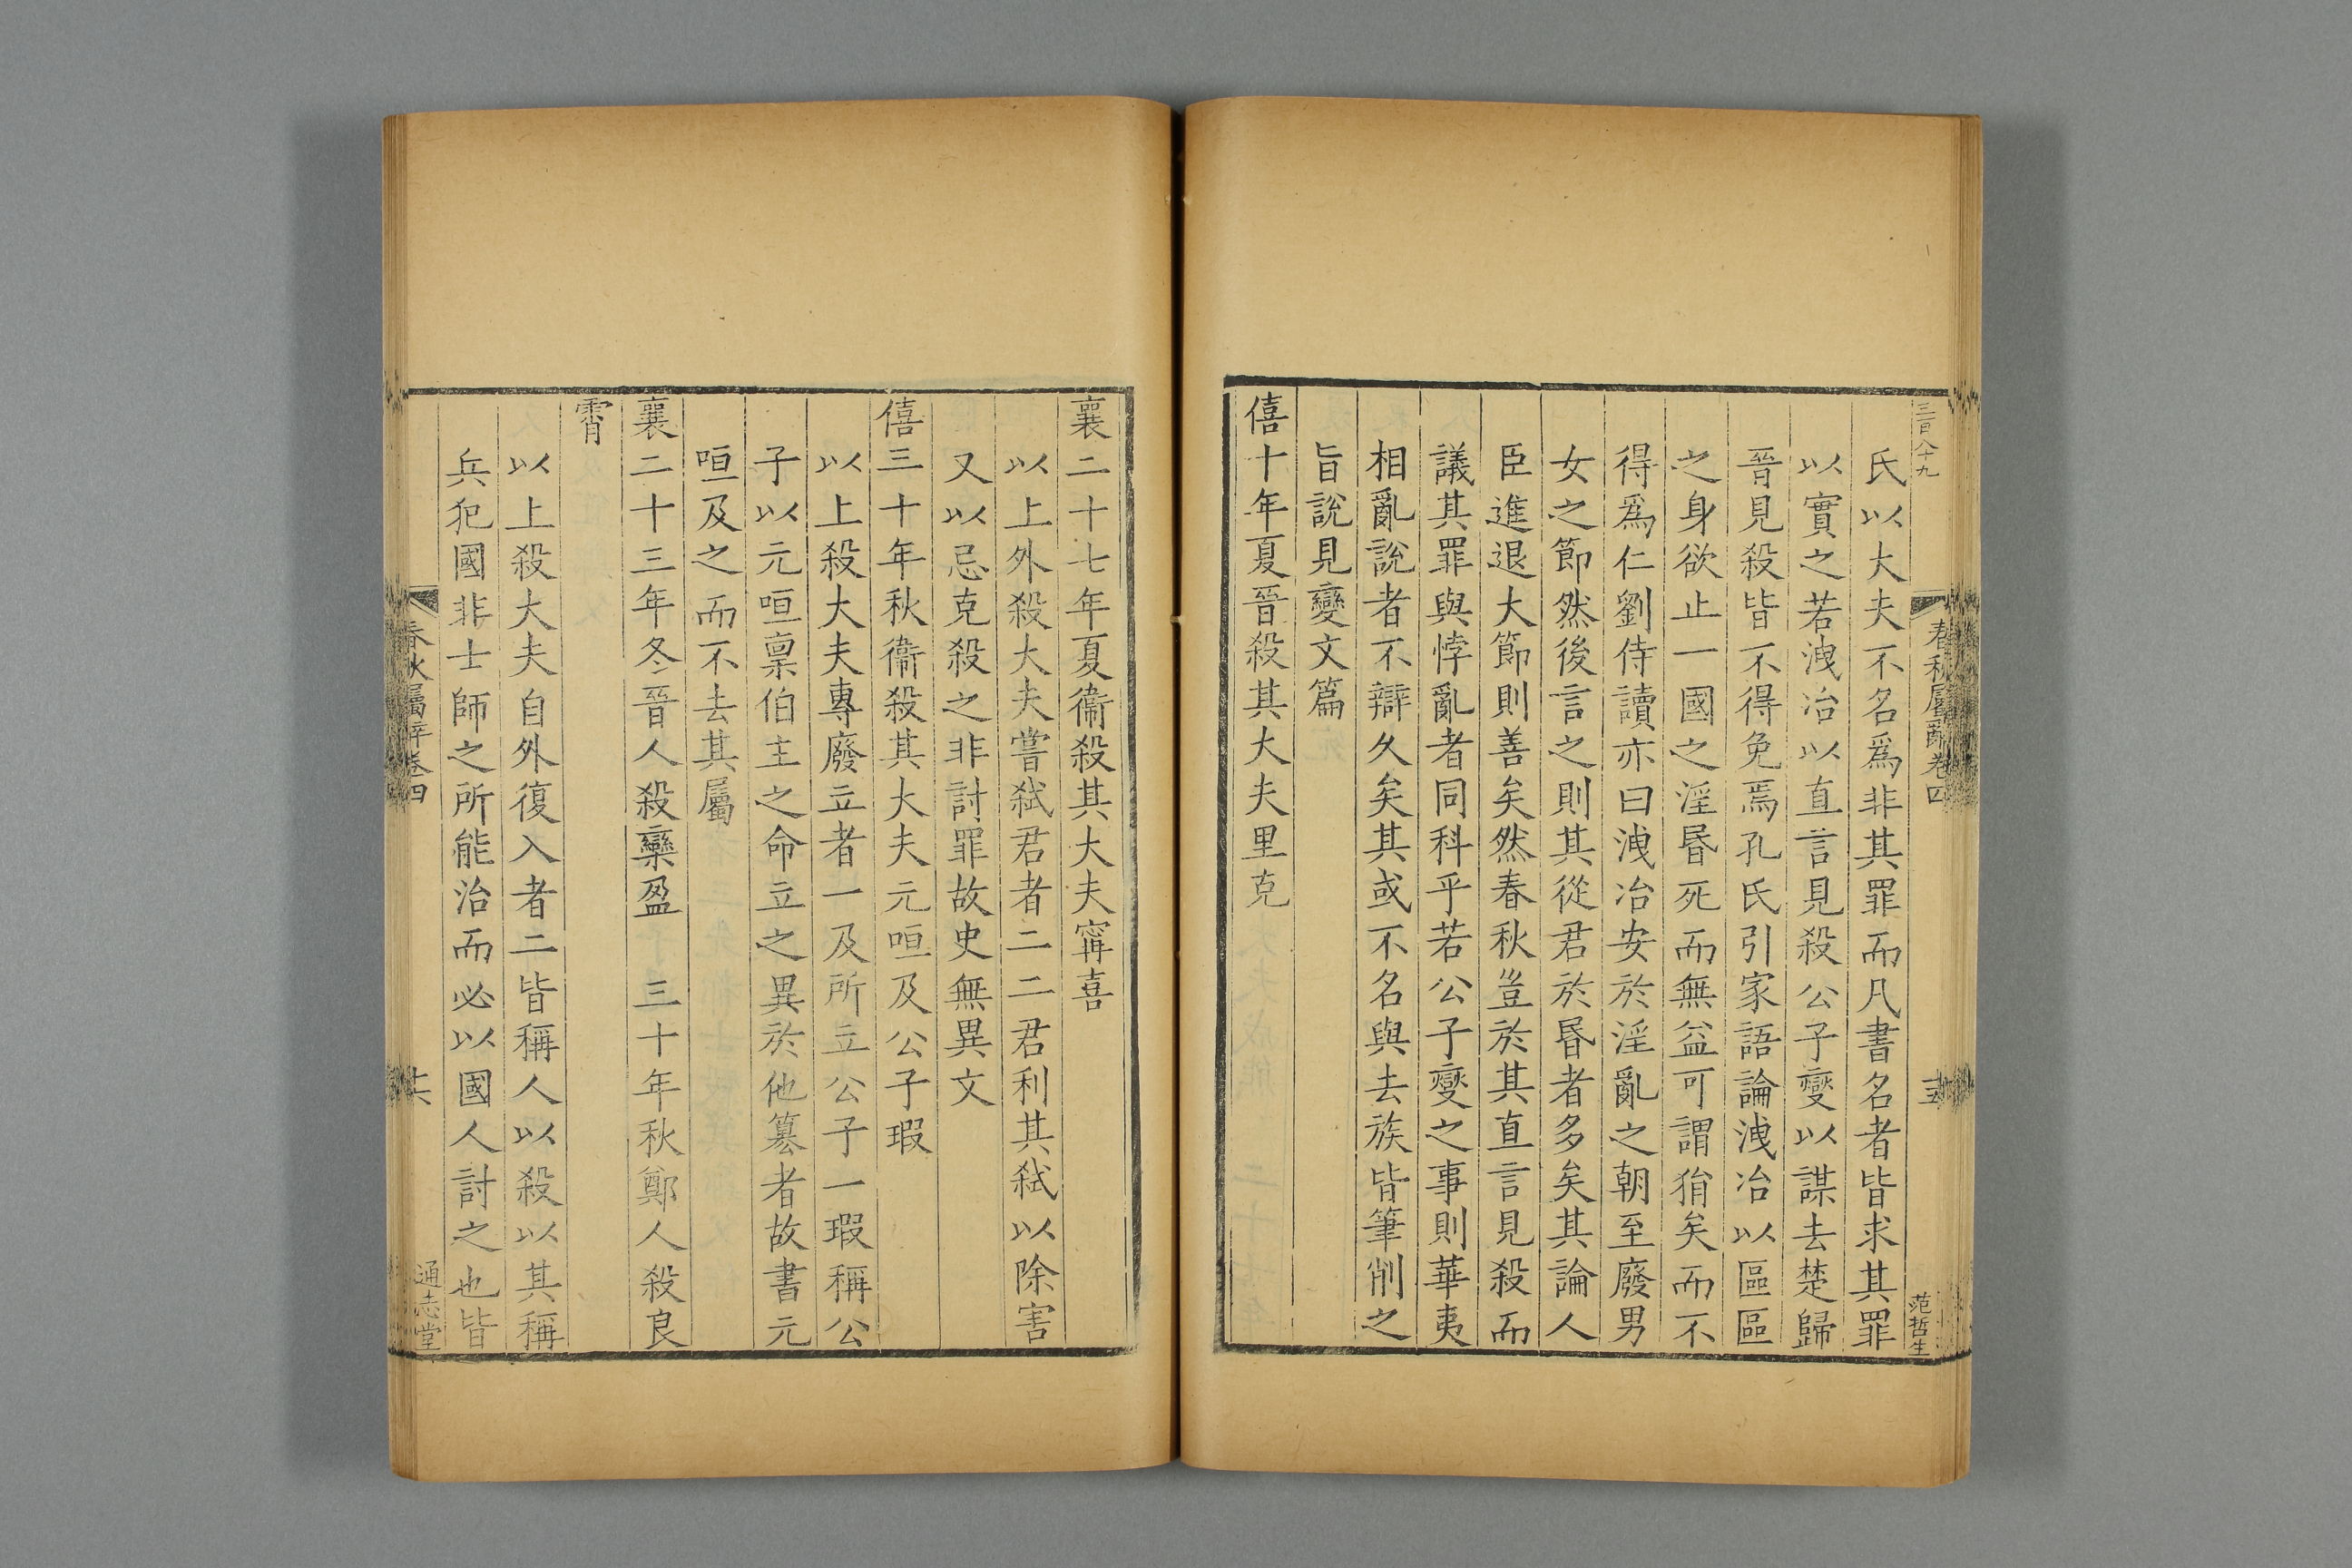 三百八十九
春秋屬辭卷四
十五
范哲生
氏以大夫不名爲非其罪而凡書名者皆求其罪
以實之若洩冶以直言見殺公子變以謀去楚歸
晉見殺皆不得免焉孔氏引家語論洩冶以區區
之身欲止一國之淫昬死而無益可謂狷矣而不
得爲仁劉侍讀亦曰洩冶安於淫亂之朝至廢男
女之節然後言之則其從君於昬者多矣其論人
臣進退大節則善矣然春秋豈於其直言見殺而
議其罪與悖亂者同科乎若公子變之事則華夷
相亂說者不辯久矣其或不名與去族皆筆削之
旨說見變文篇
僖十年夏晉殺其大夫里克
襄二十七年夏衞殺其大夫甯喜
以上外殺大夫嘗弑君者二二君利其弑以除害
又以忌克殺之非討罪故史無異文
僖三十年秋衞殺其大夫元咺及公子瑕
以上殺大夫專廢立者一及所立公子一瑕稱公
子以元咺稟伯主之命立之異於他簒者故書元
咺及之而不去其屬
襄二十三年冬晉人殺欒盈　三十年秋鄭人殺良
霄
以上殺大夫自外復入者二皆稱人以殺以其稱
兵犯國非士師之所能治而必以國人討之也皆
春秋屬辭卷四
十六
通志堂